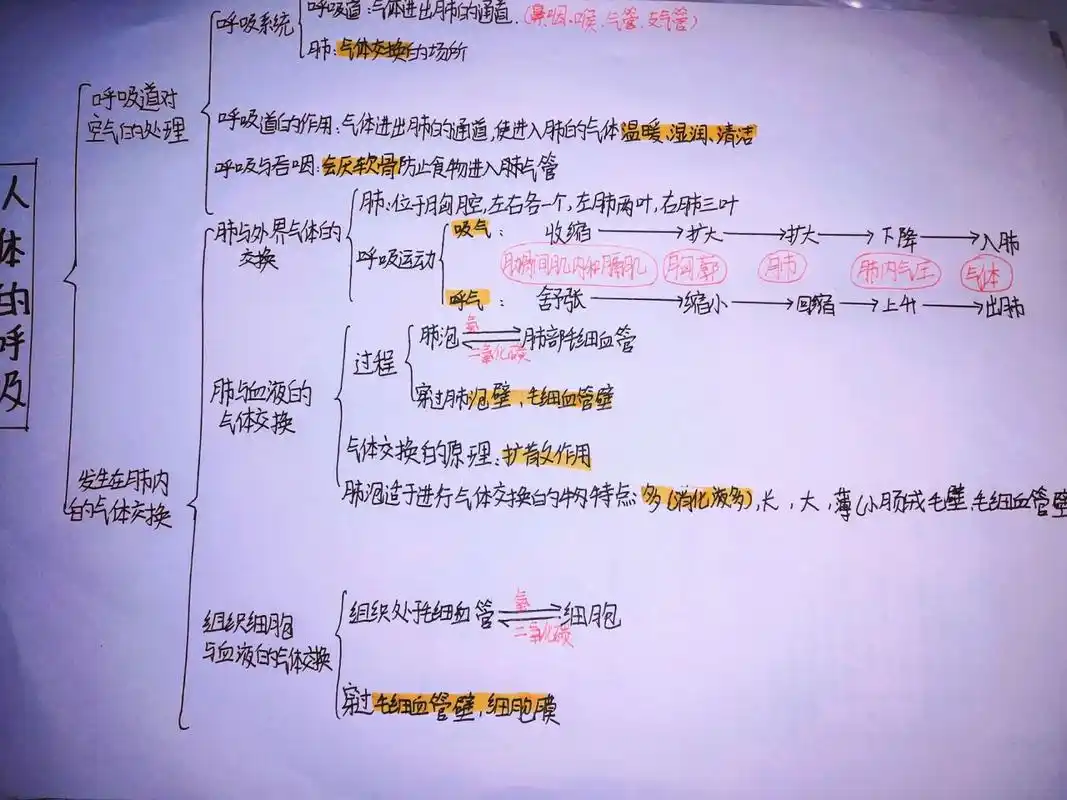 人体的呼吸
呼吸道对
空气的处理
呼吸系统
呼吸道:气体进出肺的通道.(鼻.咽.喉.气管.支气管)
肺:气体交换的场所
呼吸道的作用:气体进出肺的通道,使进入肺的气体温暖、湿润、清洁
呼吸与吞咽:会厌软骨防止食物进入肺气管
发生在肺内
的气体交换
肺与外界气体的
交换
肺:位于胸腔,左右各一个,左肺两叶,右肺三叶
呼吸运动
吸气: 收缩 → 扩大 → 扩大 → 下降 → 入肺
肋骨间肌肉和膈肌 胸廓 肺 肺内气压 气体
呼气: 舒张 → 缩小 → 回缩 → 上升 → 出肺
肺与血液的
气体交换
过程
肺泡 氧 二氧化碳 肺部毛细血管
穿过肺泡壁、毛细血管壁
气体交换的原理:扩散作用
肺泡适于进行气体交换的特点:多(消化液多),长,大,薄(小肠绒毛壁,毛细血管壁
组织细胞
与血液的气体交换
组织处毛细血管 氧 二氧化碳 细胞
穿过毛细血管壁,细胞膜